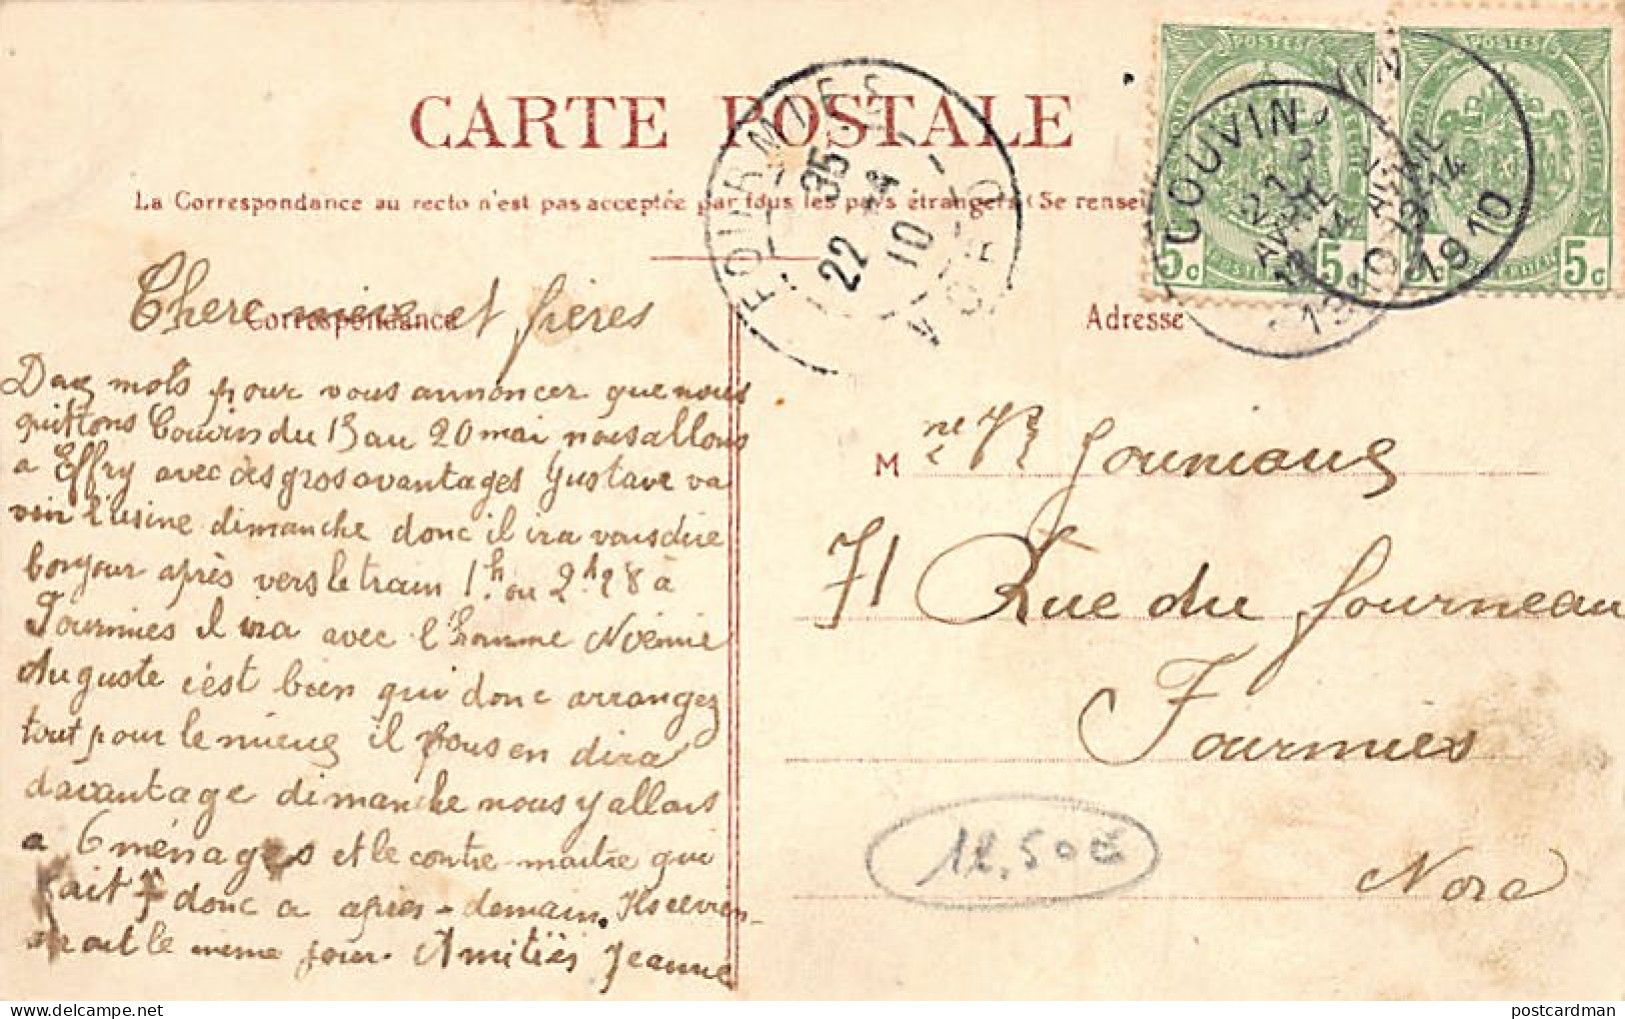 CARTE POSTALE
La Correspondance au recto n'est pas acceptée par tous les pays étrangers (Se rensei
Correspondance
Chere mère et frères
mots pour vous annoncer que nous
quittons Couvin du 15 au 20 mai nous allons
a Effry avec des gros avantages Gustave va
voir l'usine dimanche donc il ira vous dire
bonjour après vers le train 1h ou 2h28 à
Fourmies Il ira avec l'homme Noémie
Auguste c'est bien qui donc arrangez
tout pour le mieux il vous en dira
davantage dimanche nous y allons
a 6 ménages et le contre-maitre qui
fait 7 donc a après-demain. Ils revien-
le même jour. Amitiés Jeanne
FOURMIES
35
22 4
10
NORD
POSTES
POSTES
5c 5c
5c
COUVIN
21
AVRIL
14
1910
AVRIL
13-14
1910
Adresse
M me Vve Jouniaux
71 Rue du fourneau
Fourmies
Nord
12,50€
postcardman